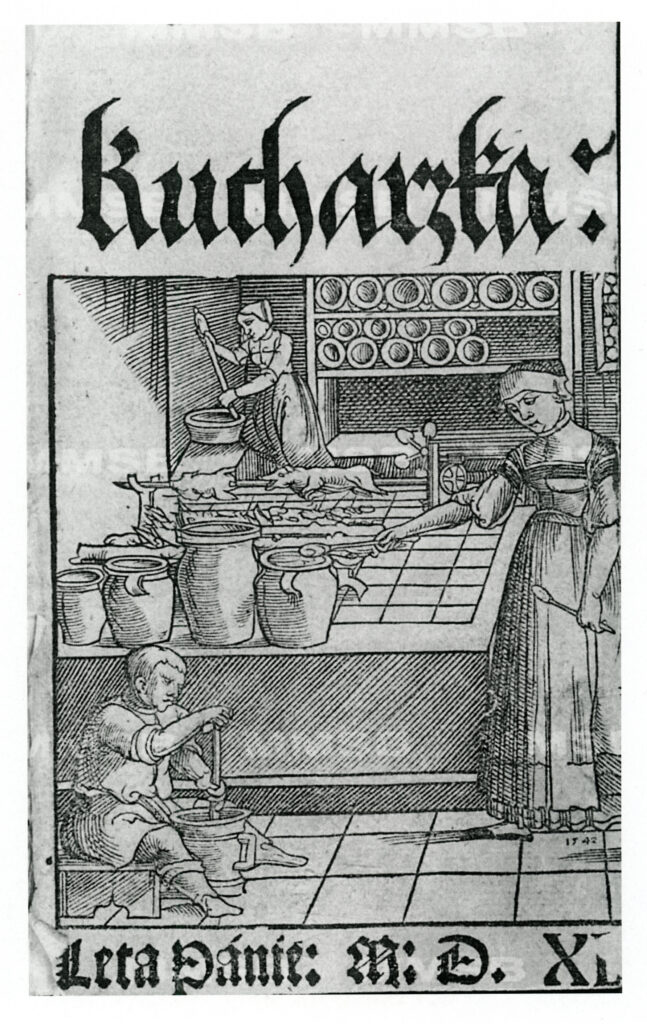 Kucharzka:
1542
Leta Pánie: M: D. XL